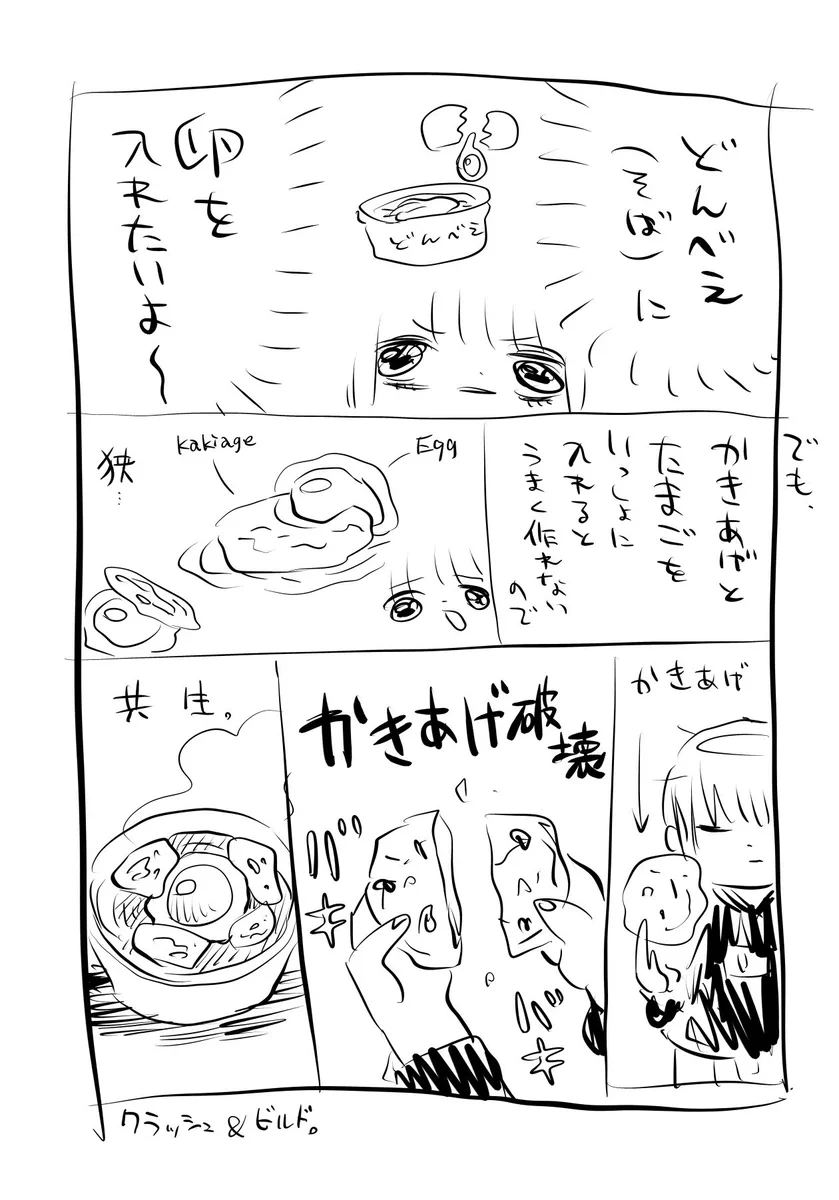 どんべえ
(そば)に
卵を
入れたいよ〜
どんべえ
でも、
かきあげと
たまごを
いっしょに
入れると
うまく作れない
ので
Egg
kakiage
狭…
かきあげ
かきあげ破壊
バキ
バキ
共生。
クラッシュ&ビルド。